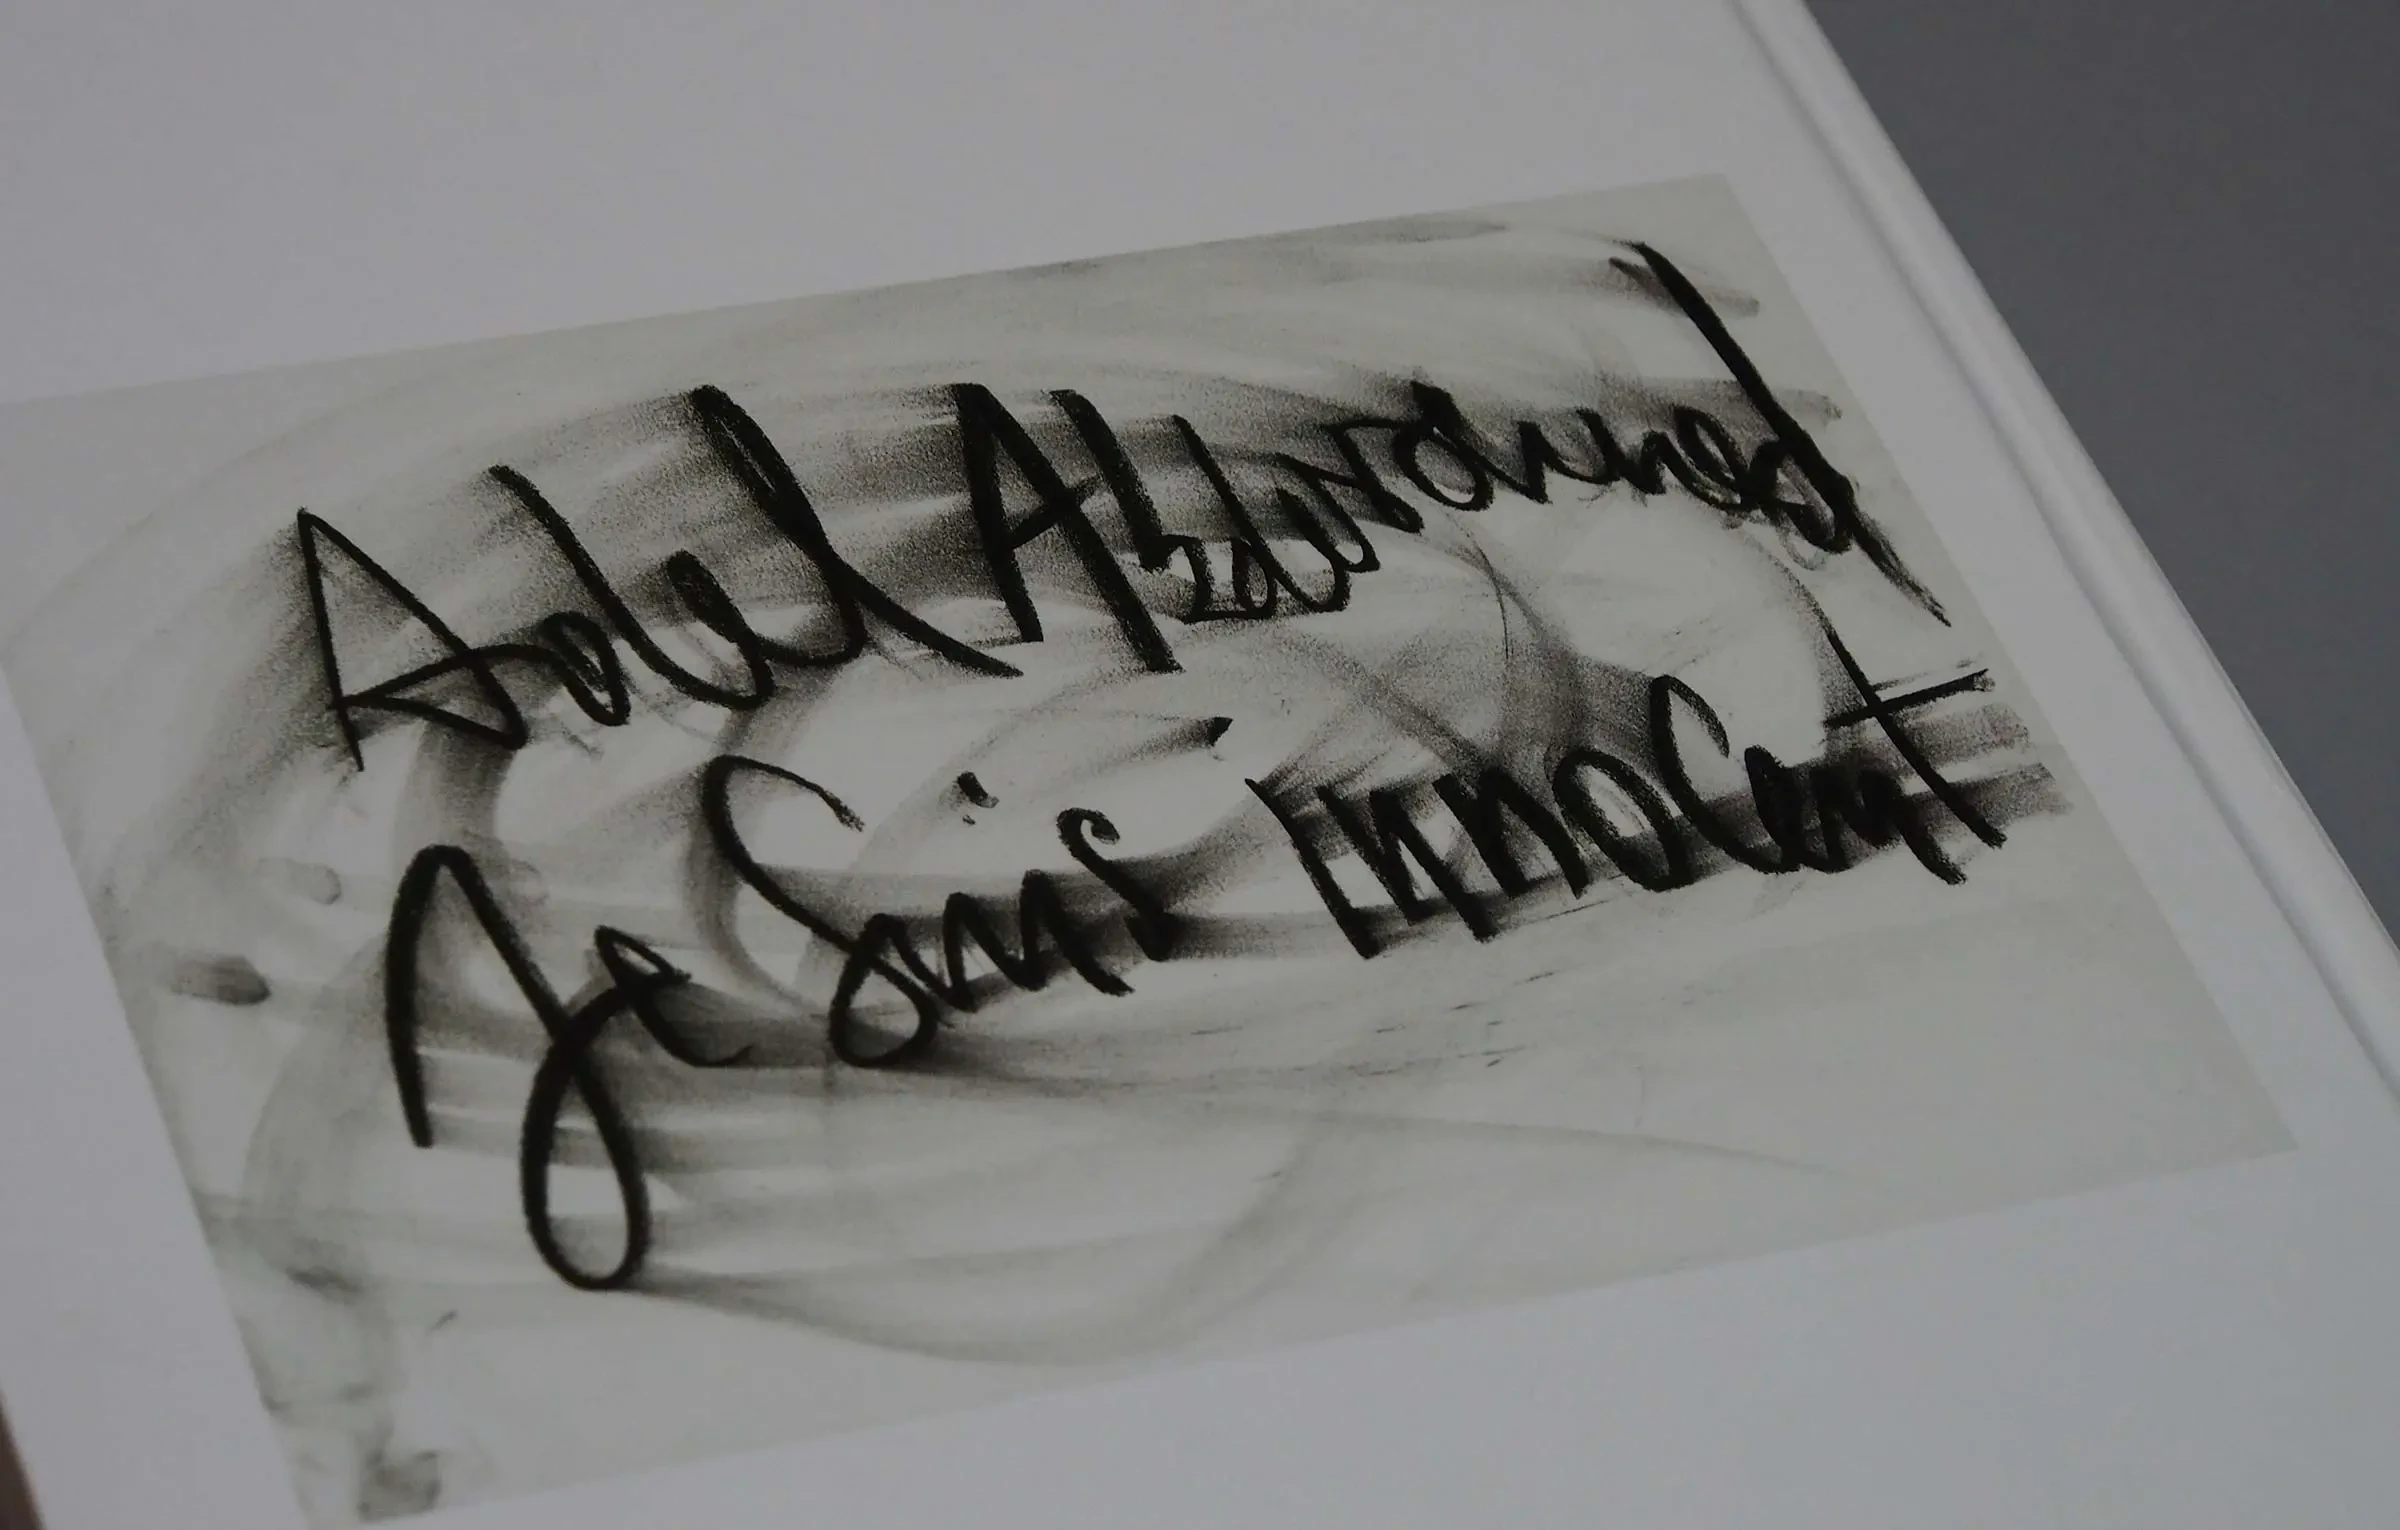 Adel Abdessemed
Je Suis Innocent